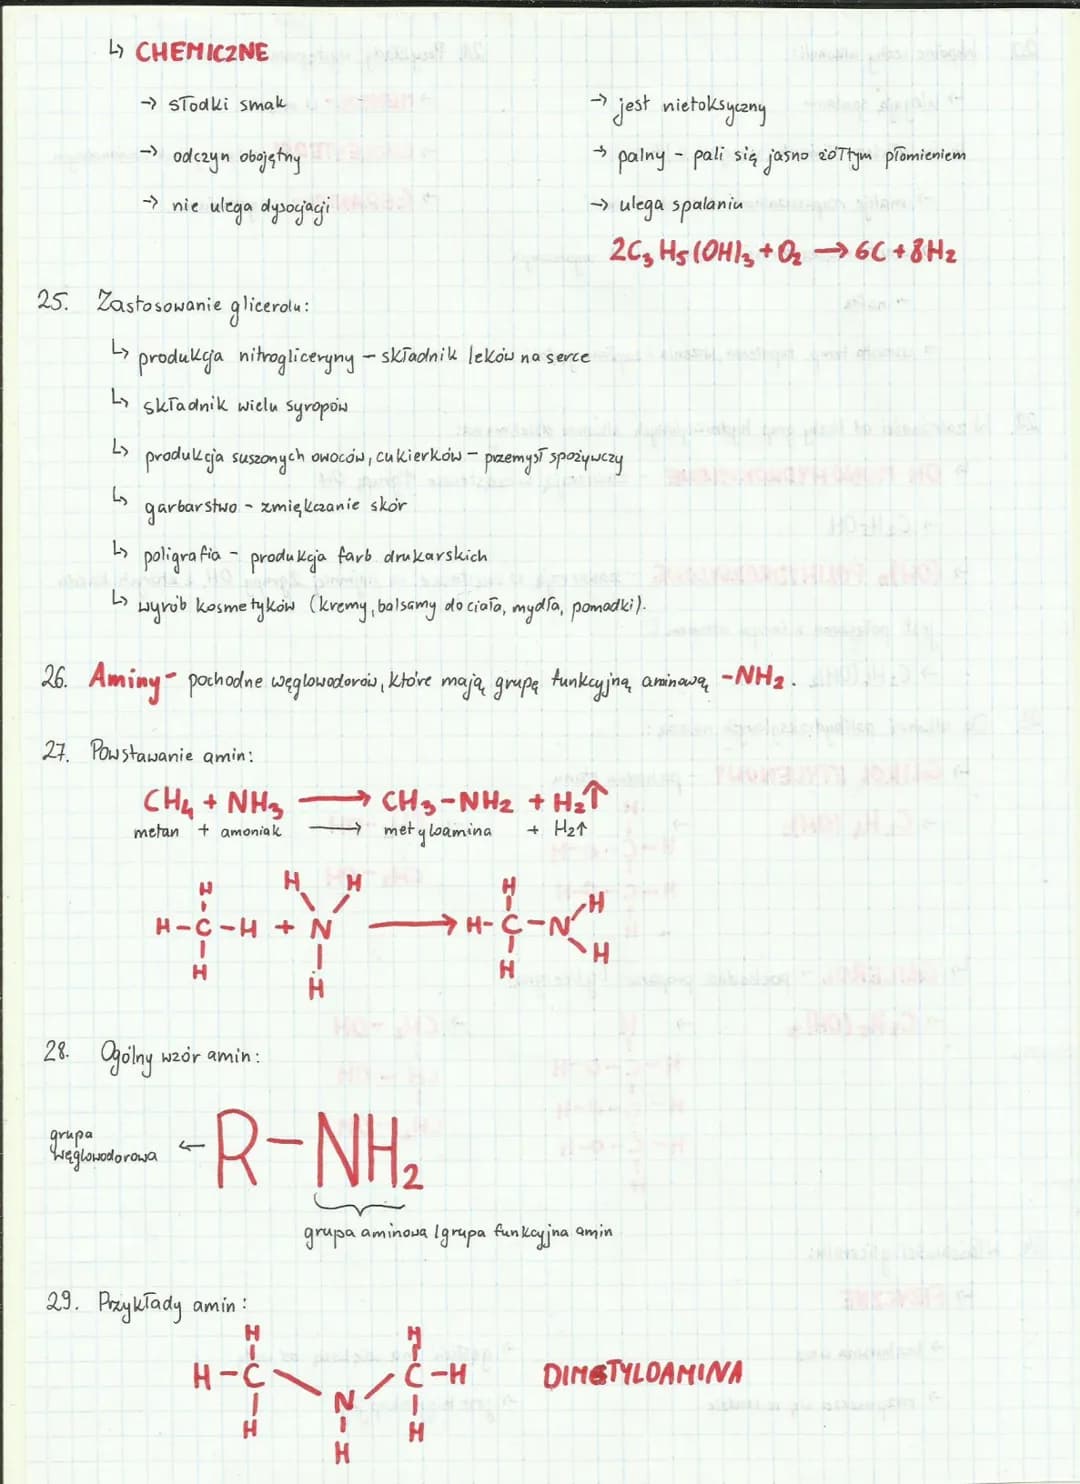 ↳ CHEMICZNE
→ słodki smak
→ odczyn obojętny
→ nie ulega dysocjacji
→ jest nietoksyczny
→ palny - pali się jasno żółtym płomieniem
→ ulega spalaniu
2C₃H₅(OH)₃ + O₂ → 6C + 8H₂
25. Zastosowanie glicerolu:
↳ produkcja nitrogliceryny - składnik leków na serce
↳ składnik wielu syropów
↳ produkcja suszonych owoców, cukierków - przemysł spożywczy
↳ garbarstwo - zmiękczanie skór
↳ poligrafia - produkcja farb drukarskich
↳ wyrób kosmetyków (kremy, balsamy do ciała, mydła, pomadki).
26. Aminy - pochodne węglowodorów, które mają grupę funkcyjną aminową -NH₂.
27. Powstawanie amin:
CH₄ + NH₃ → CH₃-NH₂ + H₂↑
metan + amoniak → metyloamina + H₂↑
H H H H
H-C-H + N → H-C-N-H
H H H H
28. Ogólny wzór amin:
grupa
węglowodorowa ← R-NH₂
grupa aminowa / grupa funkcyjna amin
29. Przykłady amin:
H H
H-C C-H DIMETYLOAMINA
N
H H
H